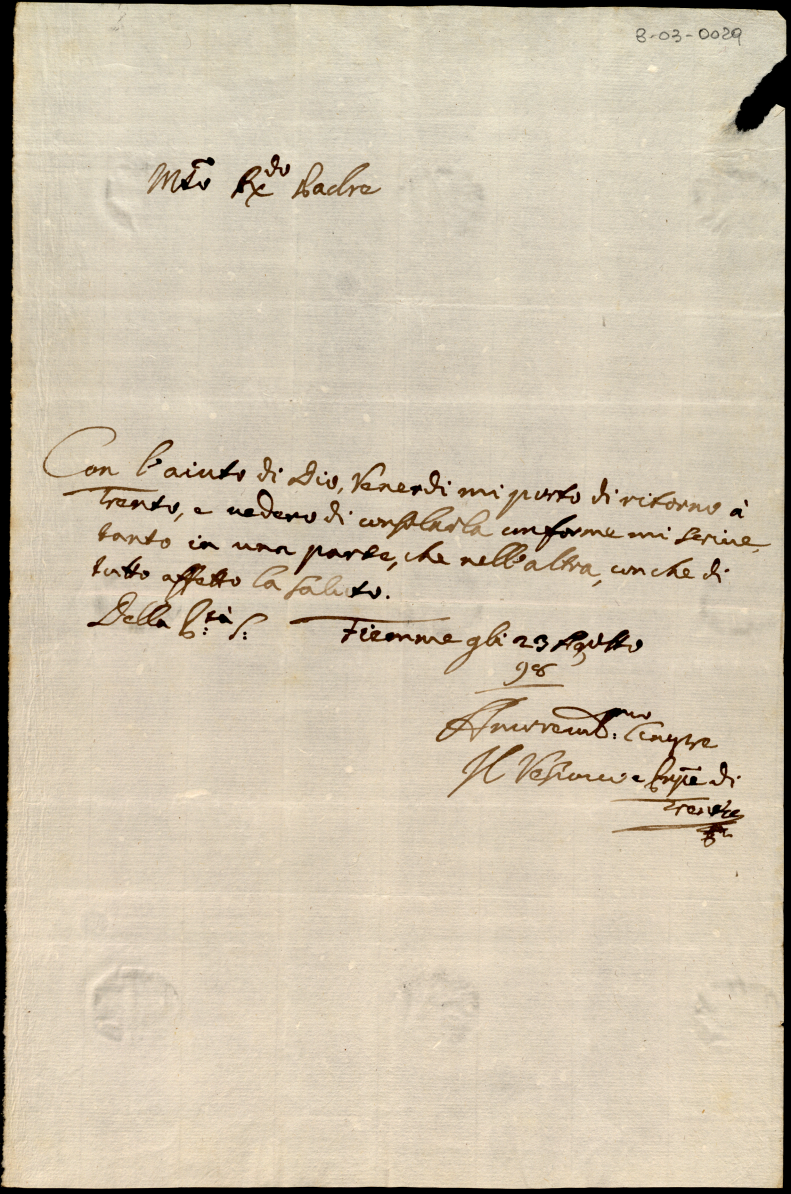 B-03-0029
Mto Rxdo Padre
Con l'aiuto di Dio, Venerdi mi porto di ritorno à
Trento, e vedero di consolarla conforme mi scrive,
tanto in una parte, che nell'altra, con che di
tutto affetto la saluto.
Della P:tà S: Fiemme gli 23 Agosto
98
Amorevol:mo sempre
Il Vescovo e Prpe di
Trento